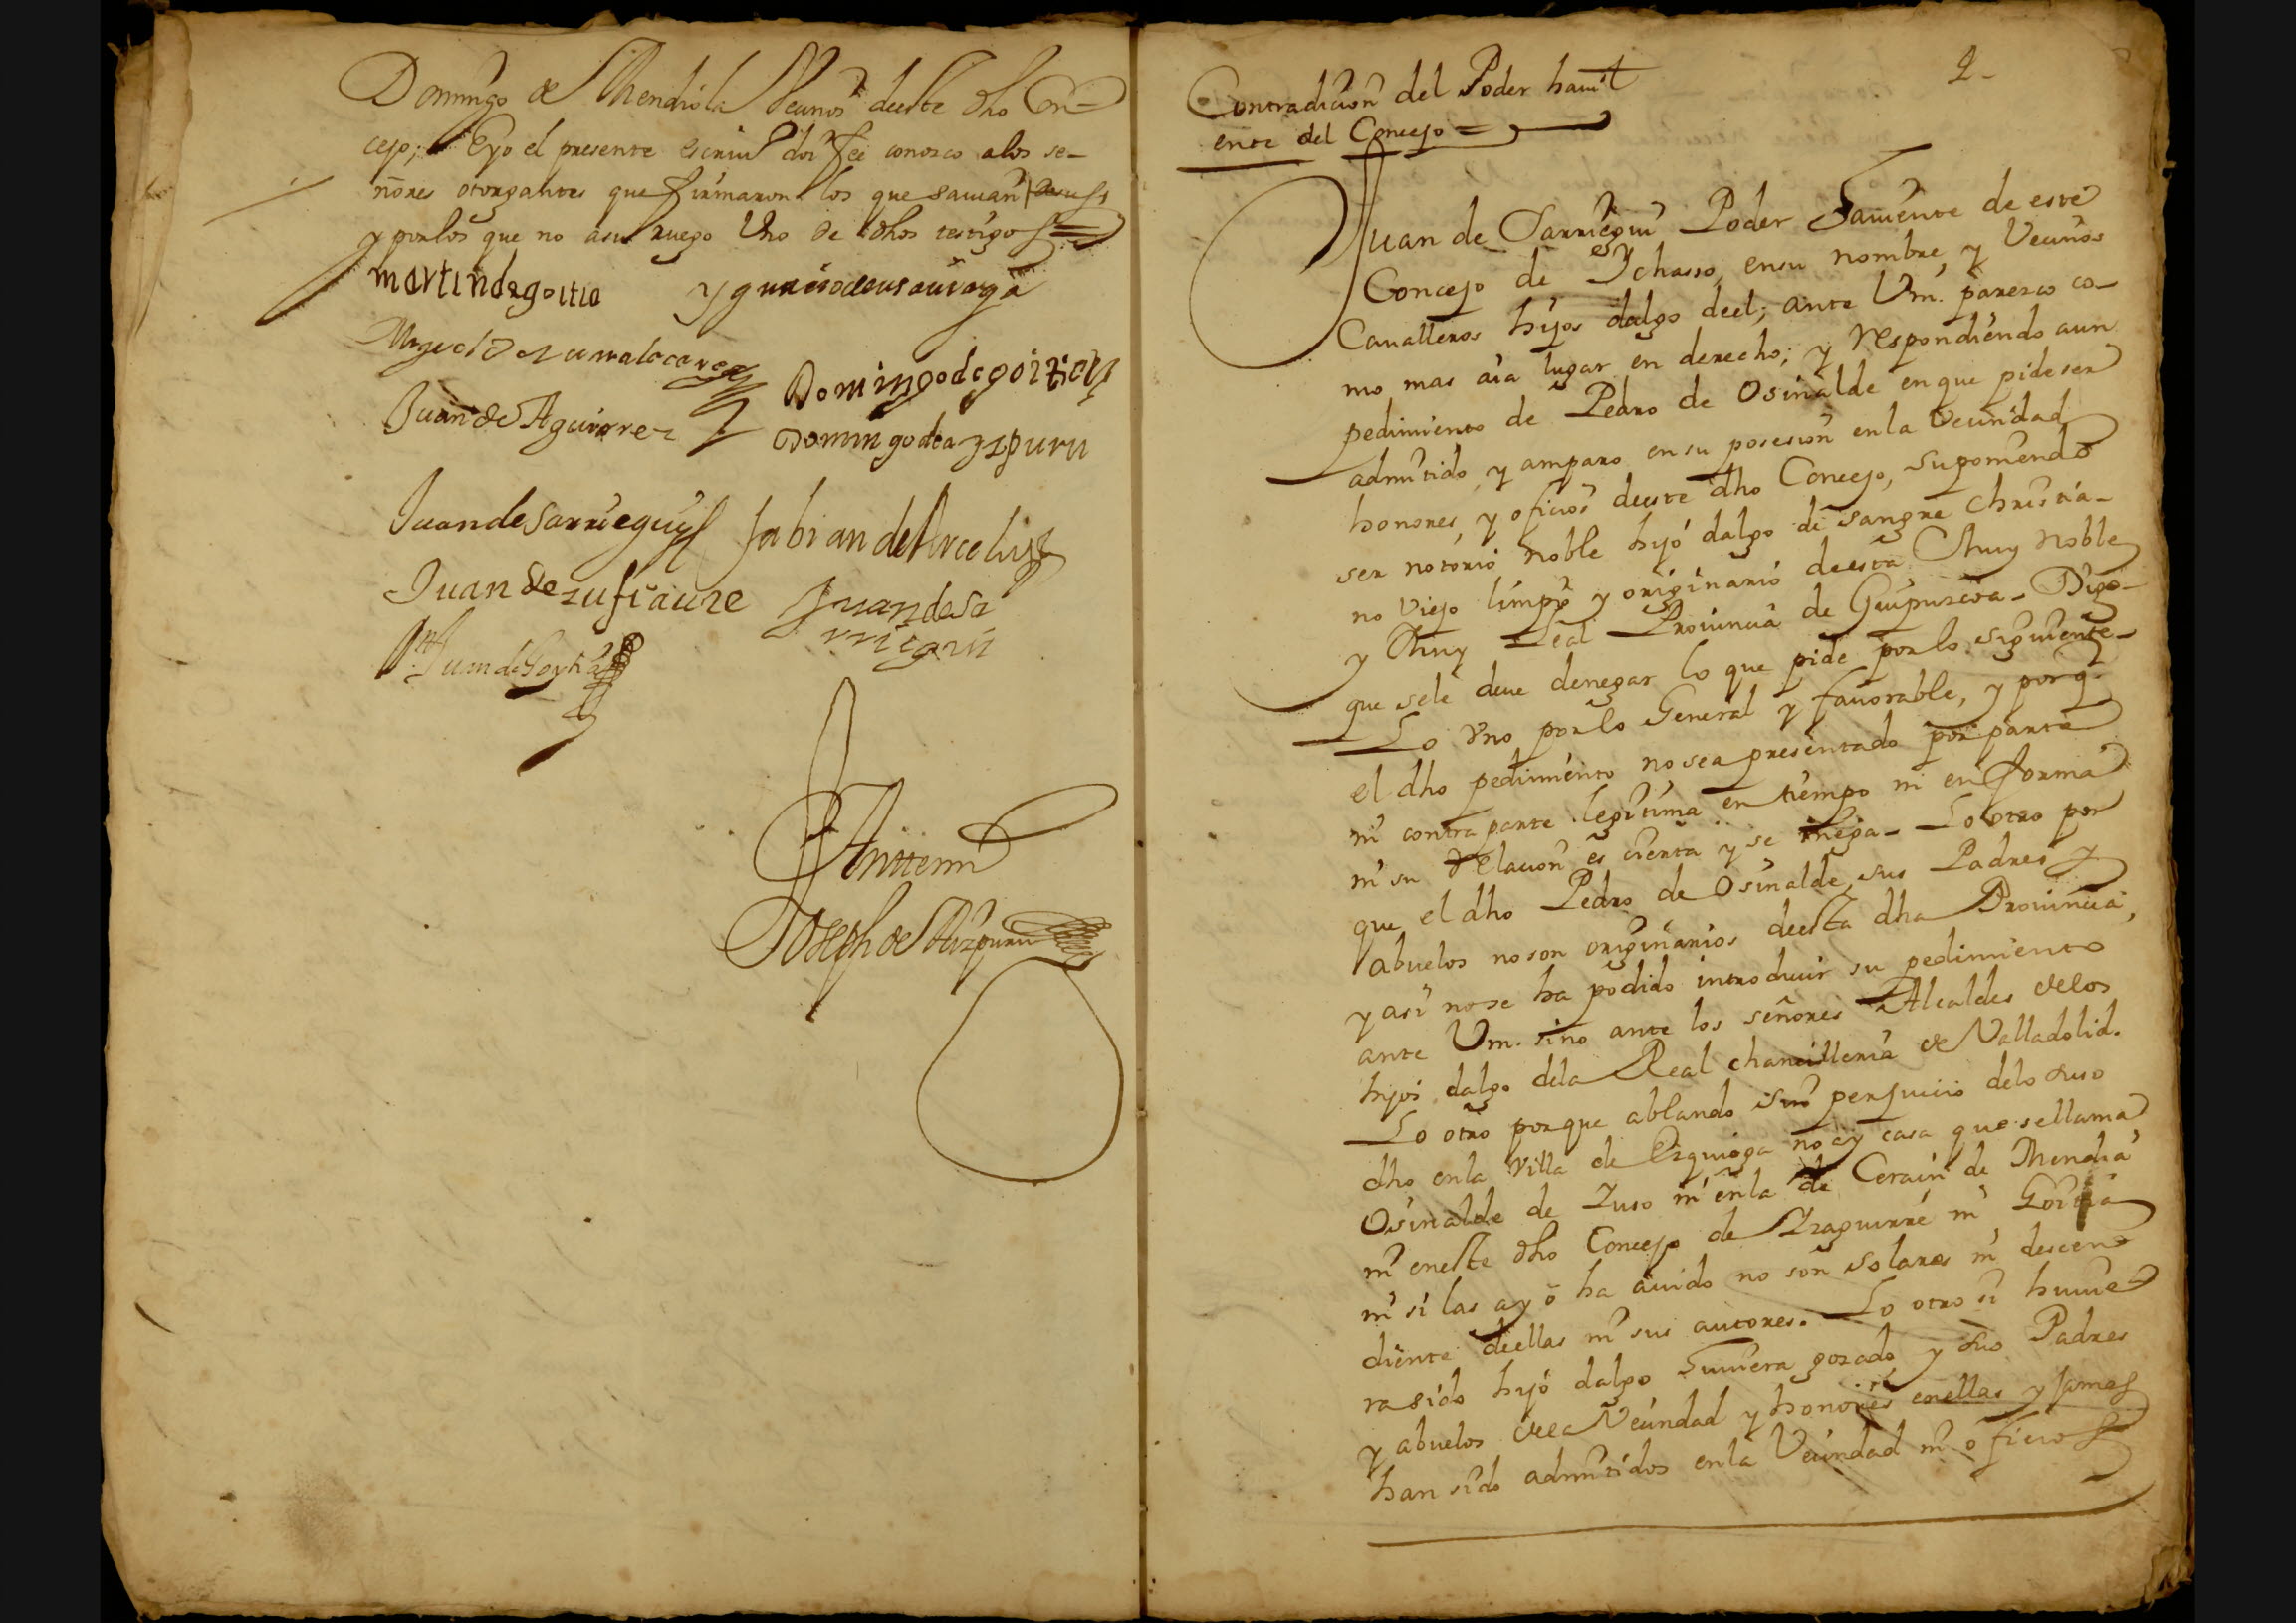 Domingo de Mendiola Vecinos deeste dho Con=
cejo; Eyo el presente escriuº doi fee conosco alos se-
ñores otorgantes que firmaron los que sauian
y porlos que no asu ruego Uno de dhos testigos=
martindegoitia
ygnaciodeusauiaga
Juan de Aguirre
Domingodegoitia
Domingodeazpuru
Juandesarriegui
fabian de Arcelus
Juan de
Juandesa
rriegui
Juan de Goytia
Anttemi
Joseph de Aizpuru
2-
Contradicion del Poder hauit
ente del Concejo=
Juan de Sarriegui Poder hauiente de este
Concejo de Ychasso, ensu nombre, y Vecinos
Caualleros hijos dalgo deel; ante Vm. paresco co-
mo mas aia lugar en derecho; y respondiendo aun
pedimiento de Pedro de Osinalde enque pideser
admitido, y amparo ensu posesion enla Vecindad
honores, y oficios deeste dho Concejo, suponiendo
ser notorio noble hijo dalgo de sangre christia-
no viejo limpio y originario deesta Muy Noble
y Muy Leal Prouincia de Guipuscoa- Digo-
que sele deue denegar lo que pide porlo siguiente-
Lo vno porlo General y fauorable, y porq.
el dho pedimiento nosea presentado por parte
ni contra parte legitima en tiempo ni en forma
ni su relacion es cierta y se niega- Lo otro por
que el dho Pedro de Osinalde, sus Padres y
abuelos noson originarios deesta dha Prouincia,
y asi nose ha podido introducir su pedimiento
ante Vm. sino ante los señores Alcaldes delos
hijos dalgo dela Real chancilleria de Valladolid.
Lo otro porque ablando sin perjuicio delo suso
dho enla Villa de Ezquioga no ay casa que sellama
Osinalde de suso ni enla de Cerain de Mendia
ni eneste dho Concejo de Yzaguirre ni Goitia
ni si las ay ó ha auido no son solares ni descen
diente deellas ni sus autores. Lo otro si huuie
rasido hijo dalgo huuiera gozado y sus Padres
y abuelos dela Vecindad y honores enellas y jamas
han sido admitidos enla Vecindad ni oficios